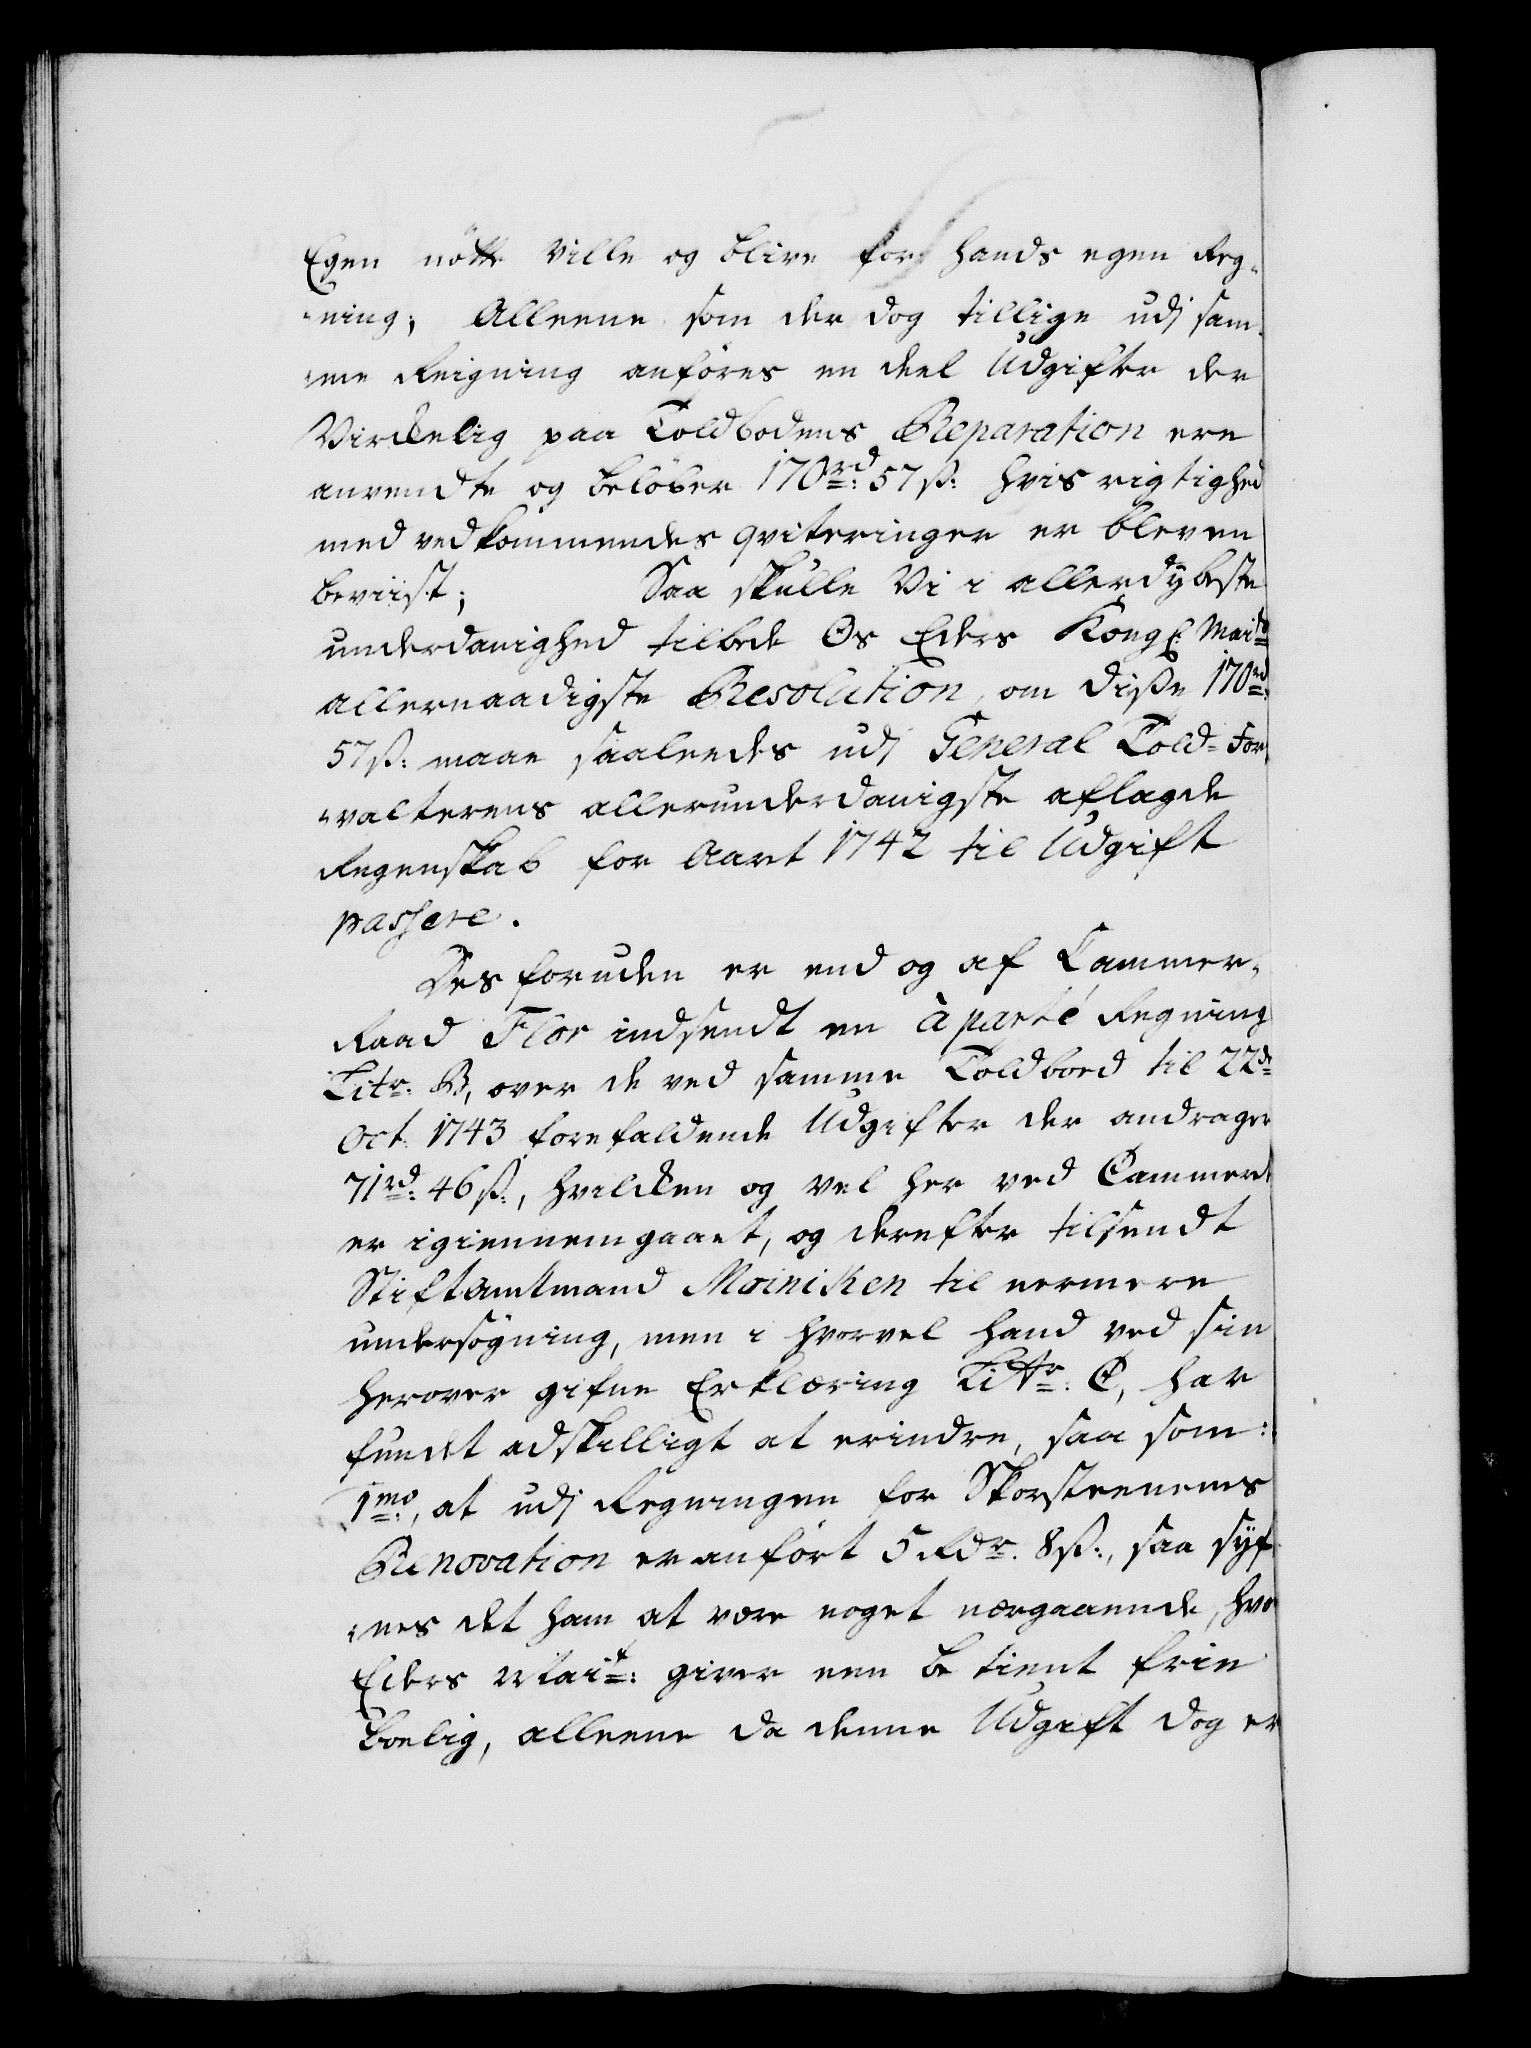 Egen nötte ville og blive for hands egen Reg¬
¬ning; Alleene som der dog tillige udj sam¬
¬me Reigning anföres en deel Udgifter der
Virckelig paa Toldbodens Reparation ere
anvendte og belöber 170rd: 57ß: hvis rigtighed
med vedkommendes qviteringer er bleven
beviist; Saa skulle Vi i allerdybeste
underdanighed tilbede Os Eders Kongl: Maits
allernaadigste Resolution, om diße 170rd:
57ß: maae saaleedes udj General Told-For¬
¬valterens allerunderdanigste aflagde
Regenskab for Aaret 1742 til Udgift
passere.
Desforuden er end og af Cammer¬
Raad Flor indsendt en àparté Regning
Litr: B, over de ved samme Toldboed til 22de
Oct: 1743 forefaldende Udgifter der andrager
71rd: 46ß:, hvilcken og vel her ved Cammeret
er igiennemgaaet, og derefter tilsendt
Stiftamtmand Moiniken til nermere
undersögning, men i hvorvel hand ved sin
herover gifne Erklæring Littr: C, har
fundet adskilligt at erindre, saa som:
1mo:, at udj Regningen for Skorsteenens
Renovation er anfört 5 Rdr. 8ß:, saa syf¬
¬nes det ham at være noget nærgaaende, hvor
Eders Mait: giver een betient frie
boelig, alleene da denne Udgift dog er